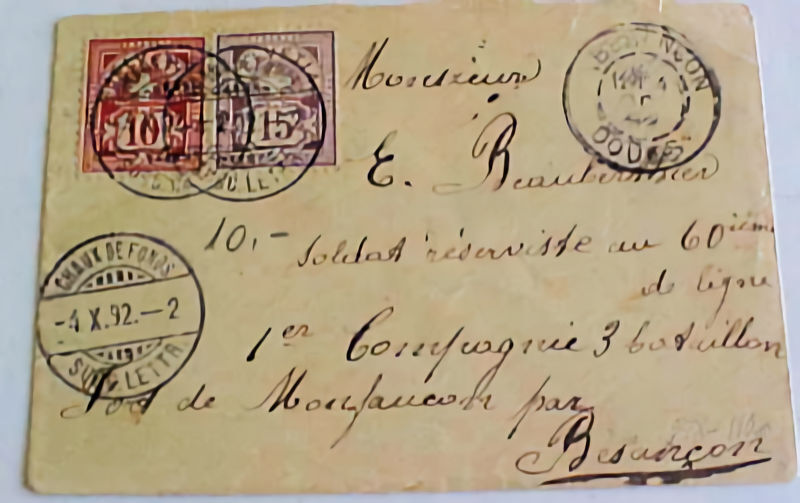 10 15
BESANÇON
DOUBS
Monsieur
E.
10,- soldat réserviste au 60ième
de ligne
1er Compagnie 3 bataillon
Fort de Monfaucon par
Besançon
CHAUX DE FONDS
-4 X.92.-2
SUCC. LETTR